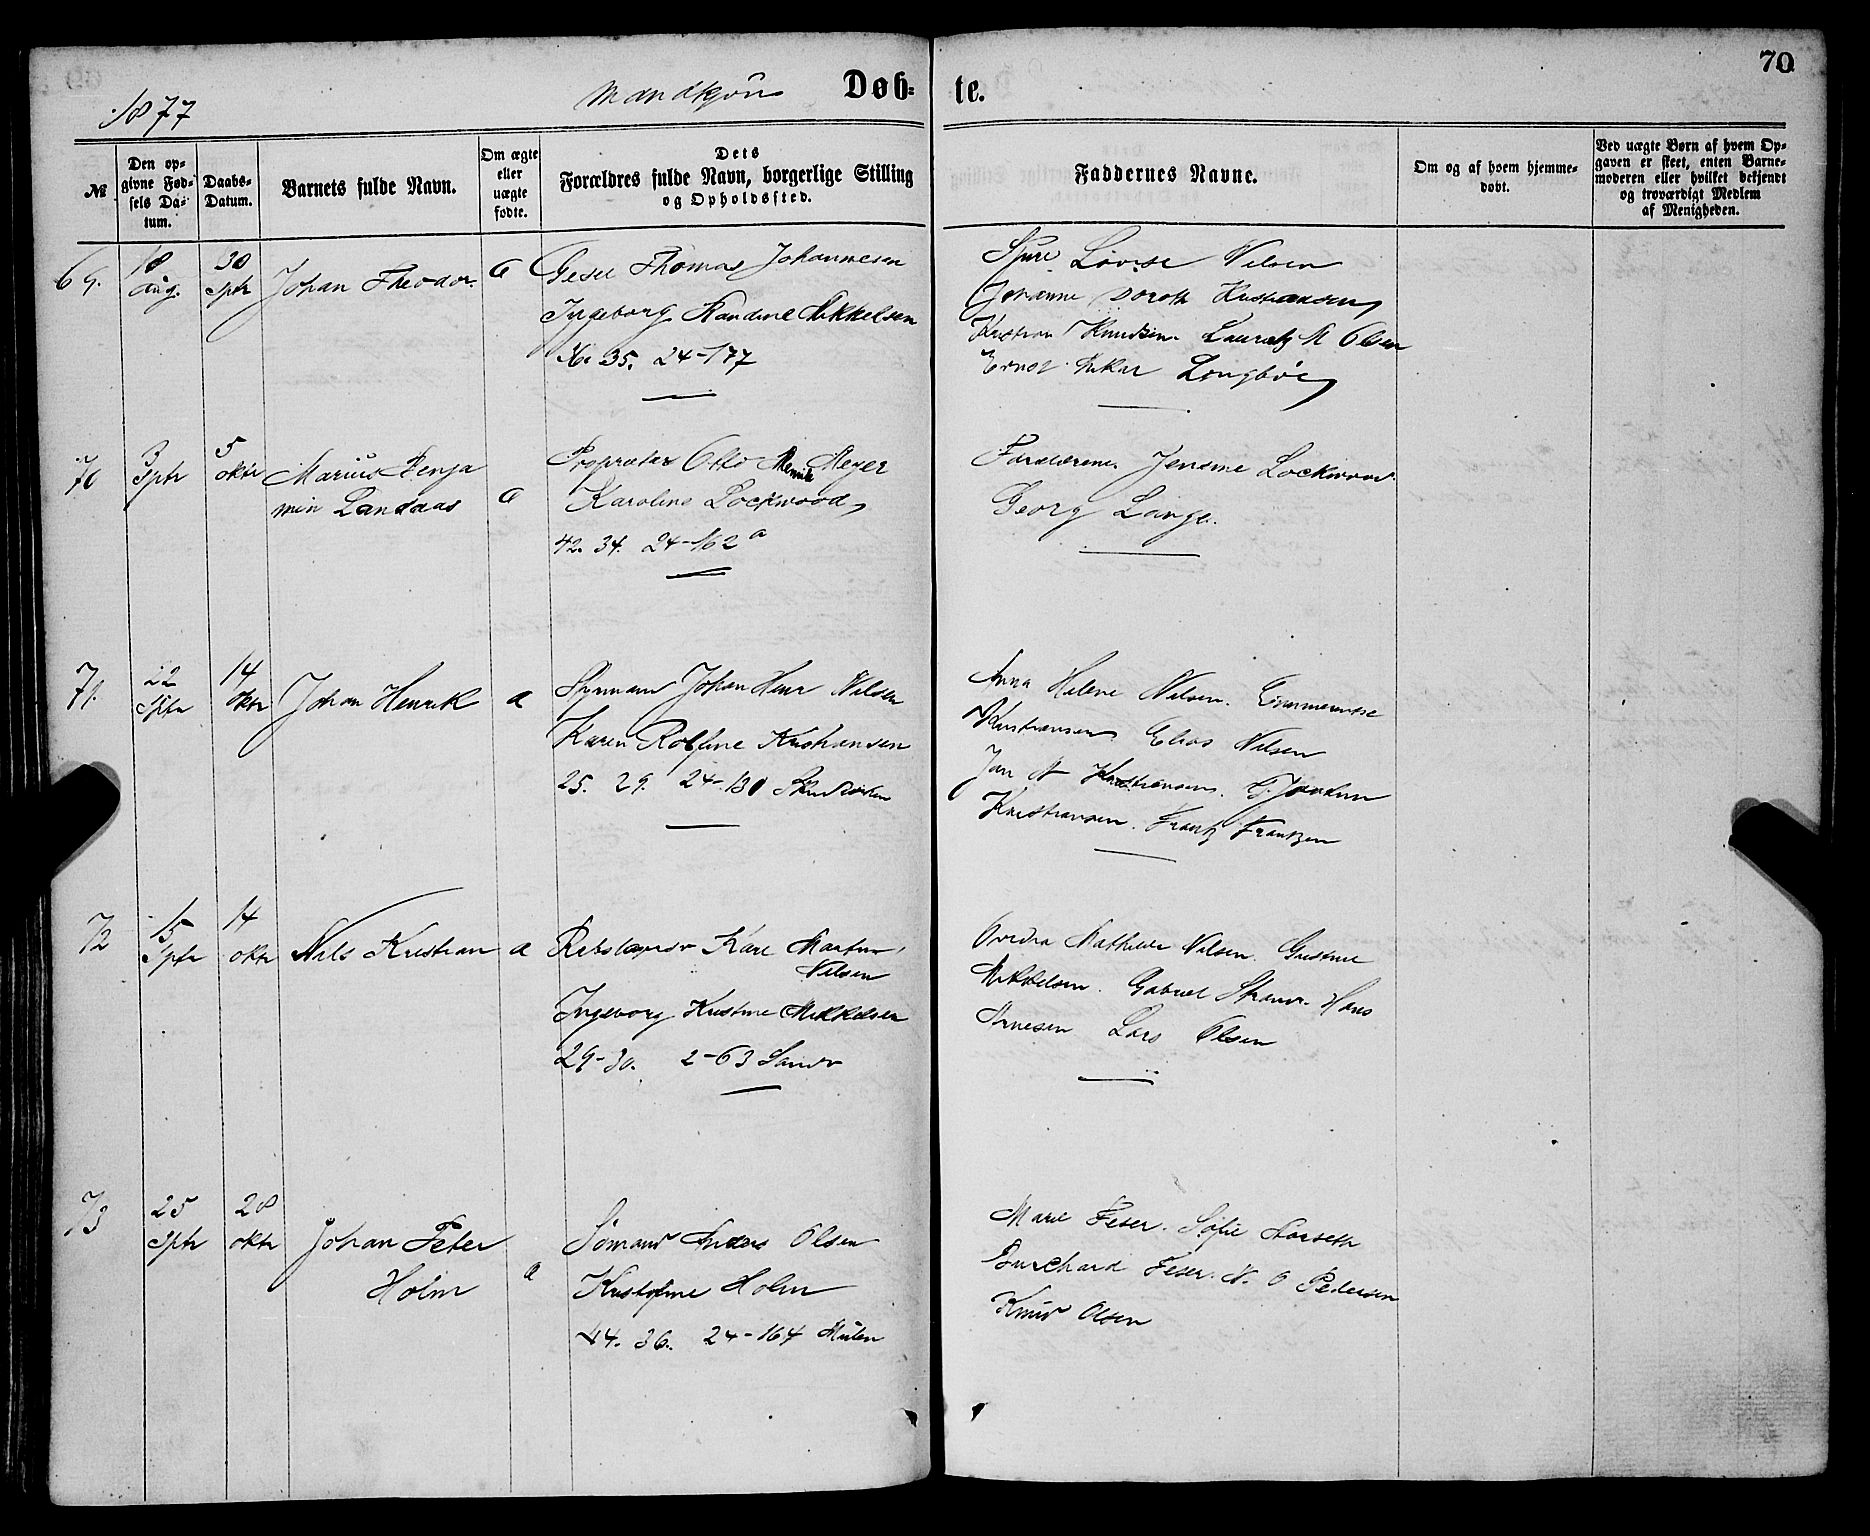 70
1877 Mandkjøn Døb= te.
№
Den op-
givne Fød-
sels Da-
tum.
Daabs-
Datum.
Barnets fulde Navn.
Om ægte
eller
uægte
fødte.
Dets
Forældres fulde Navn, borgerlige Stilling
og Opholdssted.
Faddernes Navne.
Om og af hvem hjemme-
døbt.
Ved uægte Børn af hvem Op-
gaven er skeet, enten Barne-
moderen eller hvilket bekjendt
og troværdigt Medlem
af Menigheden.
69. 18 Aug. 30 Sptr Johan Theodor a Gesel Thomas Johannesen
Ingeborg Mikkelsen
35. 24-177
Lovise Nilsen
Johanne Doroth Kristiansen
Kristian Knudsen Lauritz M Olsen
Ernst Langbøe
70 3 Sptr 5 oktr Marius Benja
min Landaas a
Proprietær Otto Henrik Meyer
Karoline Lockwood
42. 34. 24-162 a
Forældrene. Jensine Lockwood
Georg Lange.
71. 22 Sptr 14 oktr Johan Henrik a
Styrmand Johan Henr Nilsen
Karen Rolfine Kristiansen
25. 29. 24-131
Anna Helene Nilsen. Emmerentse
Kristiansen Elias Nilsen
Jan N Kristiansen.
Kristiansen. Frantz Frantzen
72 15 Sptr 14 oktr Nils Kristian a Rebslagersv Karl Martin
Nilsen
Ingeborg Kristine Mikkelsen
29-30. 2-63 Sandv
Mathilde Nilsen. Gustine
Mikkelsen. Gabriel Strand. Hans
Arnesen Lars Olsen
73 25 Sptr 28 oktr Johan Peter
Holm a
Sømand Anders Olsen
Kristofine Holm
44. 36. 24-164 Mulen
Marie Feser. Sofie
Burchard Feser. N. O Pedersen
Knud Olsen